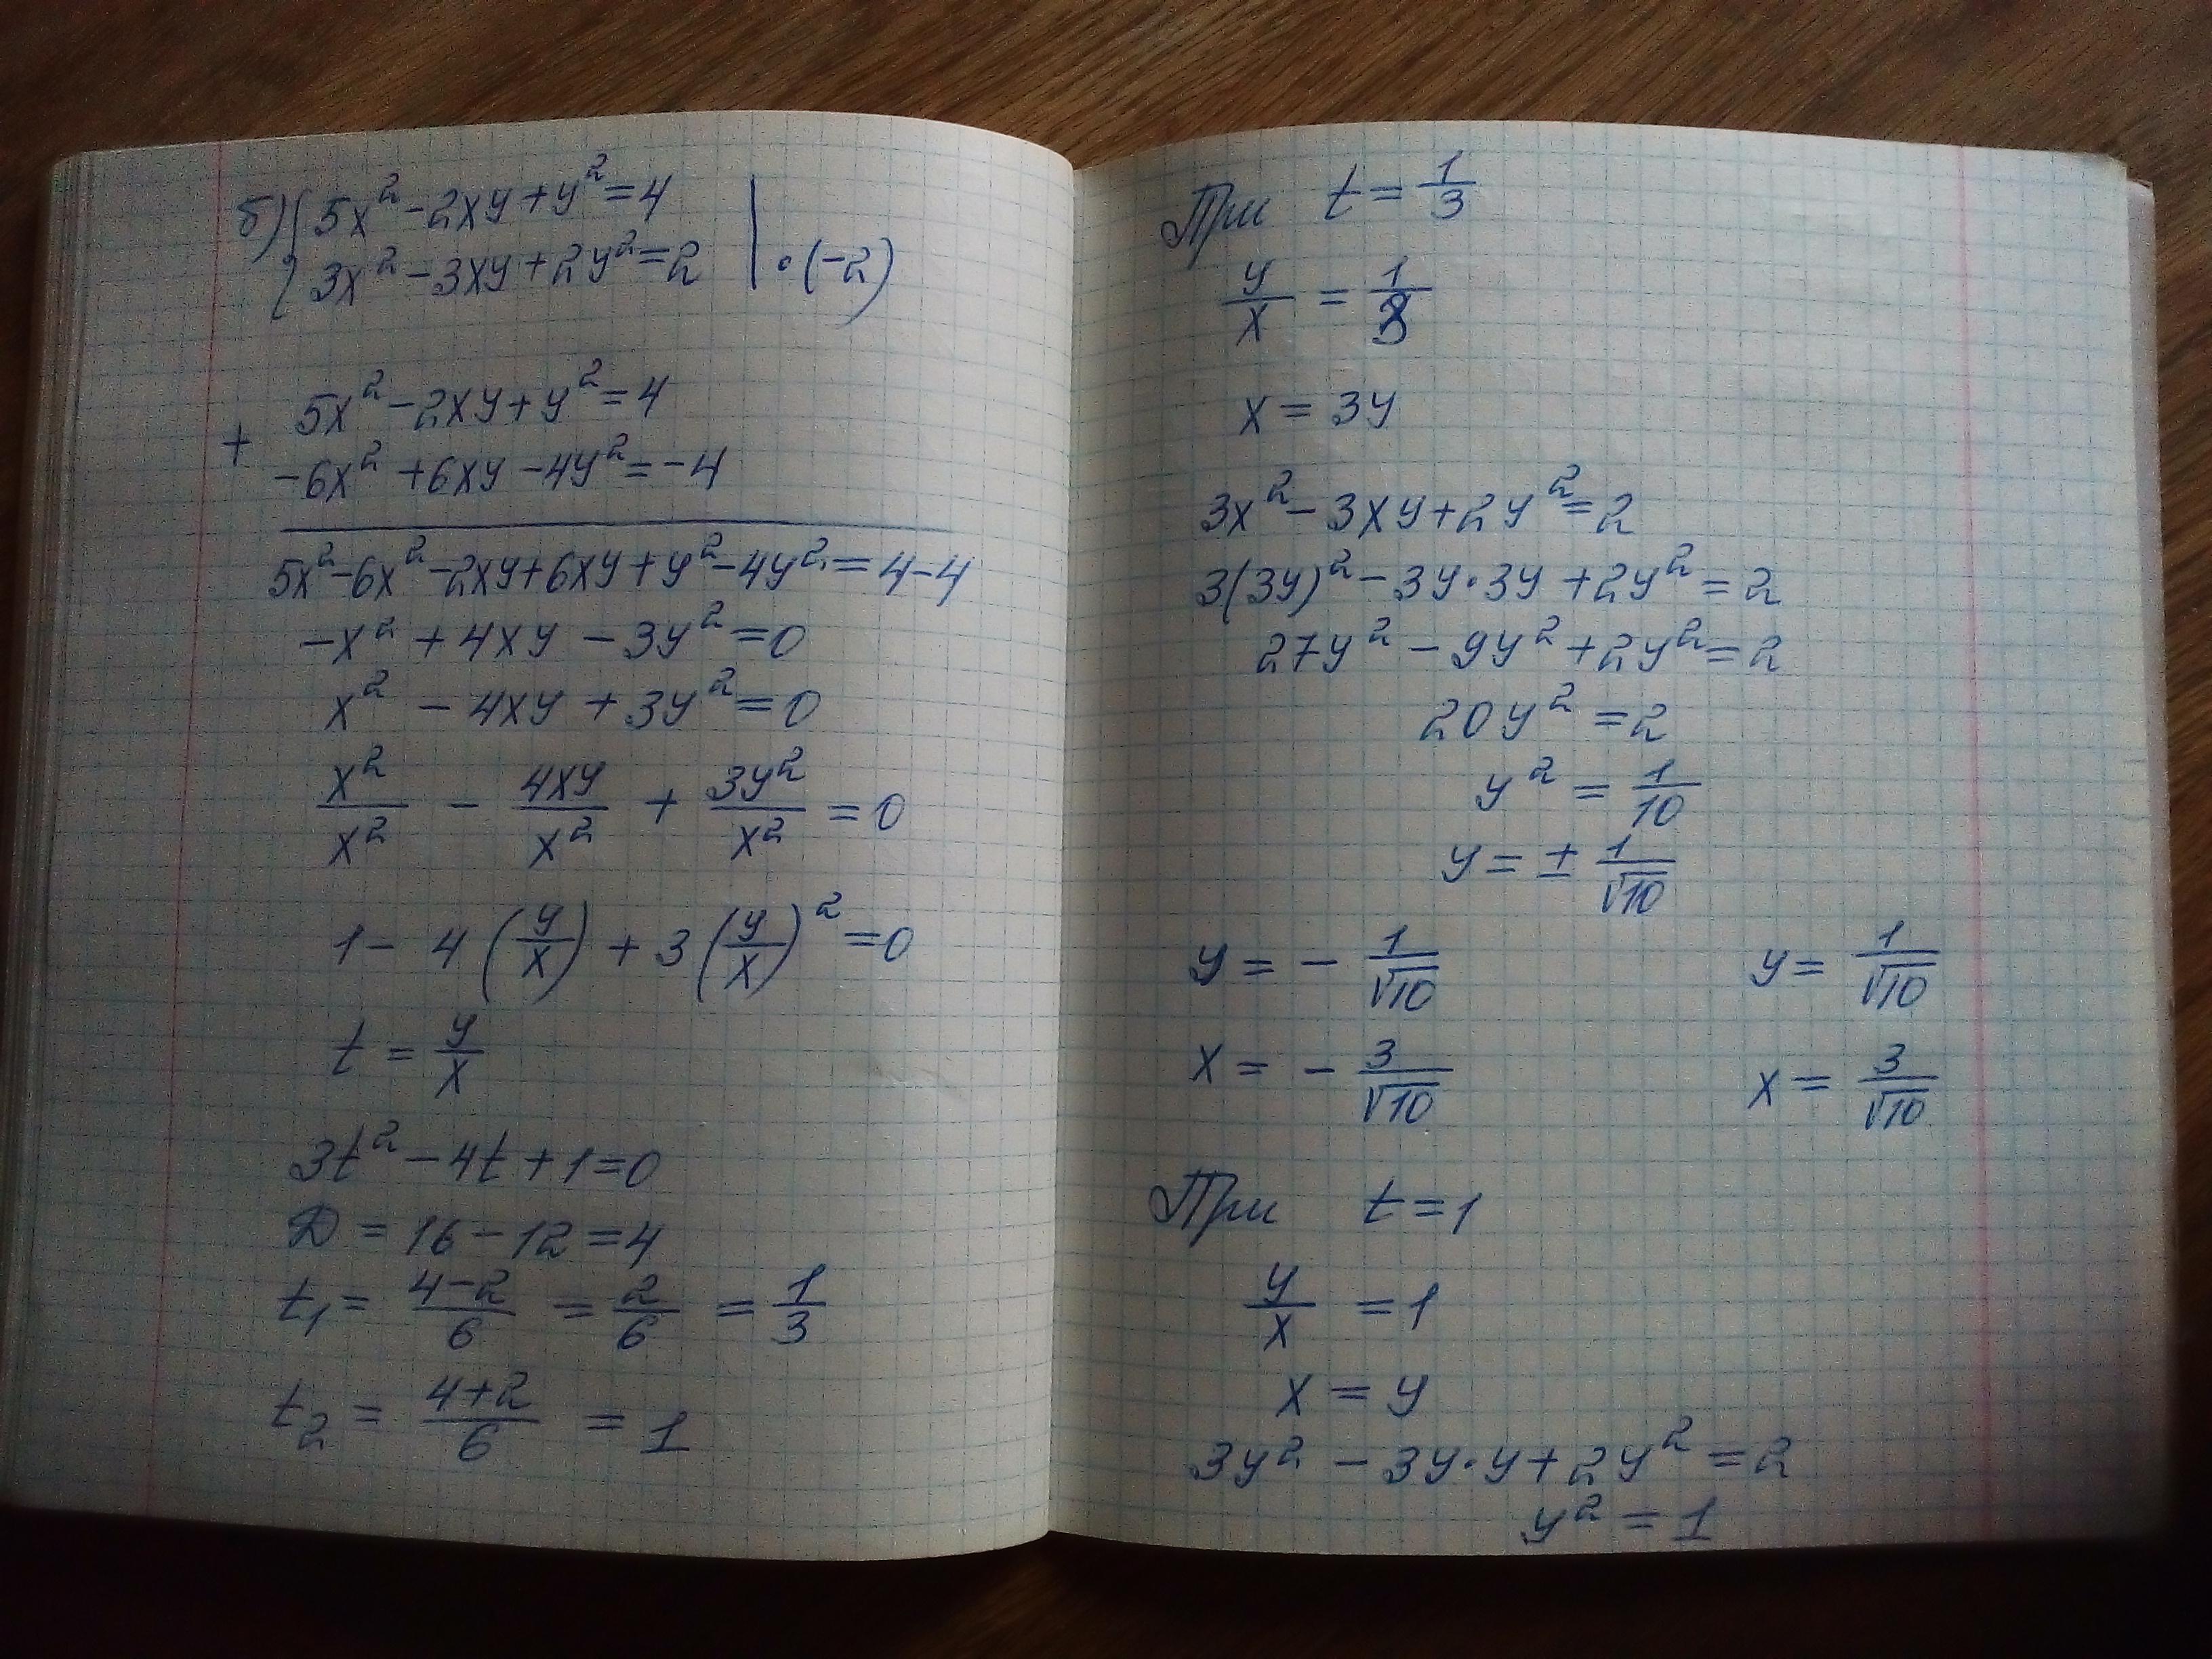 б) { 5x² - 2xy + y² = 4 |
3x² - 3xy + 2y² = 2 | · (-2)
5x² - 2xy + y² = 4
+
-6x² + 6xy - 4y² = -4
5x² - 6x² - 2xy + 6xy + y² - 4y² = 4 - 4
-x² + 4xy - 3y² = 0
x² - 4xy + 3y² = 0
x²/x² - 4xy/x² + 3y²/x² = 0
1 - 4(y/x) + 3(y/x)² = 0
t = y/x
3t² - 4t + 1 = 0
D = 16 - 12 = 4
t₁ = (4-2)/6 = 2/6 = 1/3
t₂ = (4+2)/6 = 1
При t = 1/3
y/x = 1/3
x = 3y
3x² - 3xy + 2y² = 2
3(3y)² - 3y · 3y + 2y² = 2
27y² - 9y² + 2y² = 2
20y² = 2
y² = 1/10
y = ± 1/√10
y = - 1/√10 y = 1/√10
x = - 3/√10 x = 3/√10
При t = 1
y/x = 1
x = y
3y² - 3y · y + 2y² = 2
y² = 1